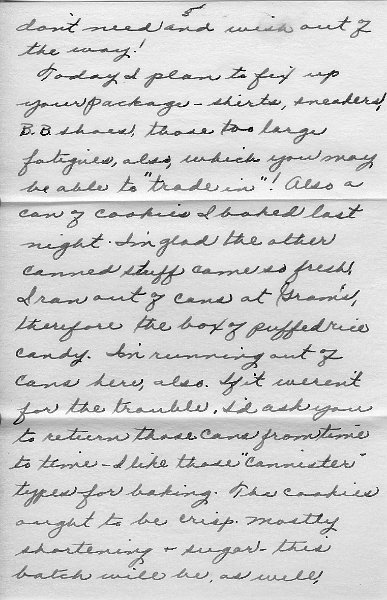 5
don't need and wish out of
the way!
Today I plan to fix up
your package - shirts, sneakers,
B.B. shoes, those too large
fatigues, also, which you may
be able to "trade in"! Also a
can of cookies I baked last
night. I'm glad the other
canned stuff came so fresh.
I ran out of cans at Gram's,
therefore the box of puffed rice
candy. I'm running out of
cans here, also. If it weren't
for the trouble, I'd ask you
to return those cans from time
to time - I like those "cannister"
types for baking. The cookies
ought to be crisp. mostly
shortening + sugar - this
batch will be, as well,